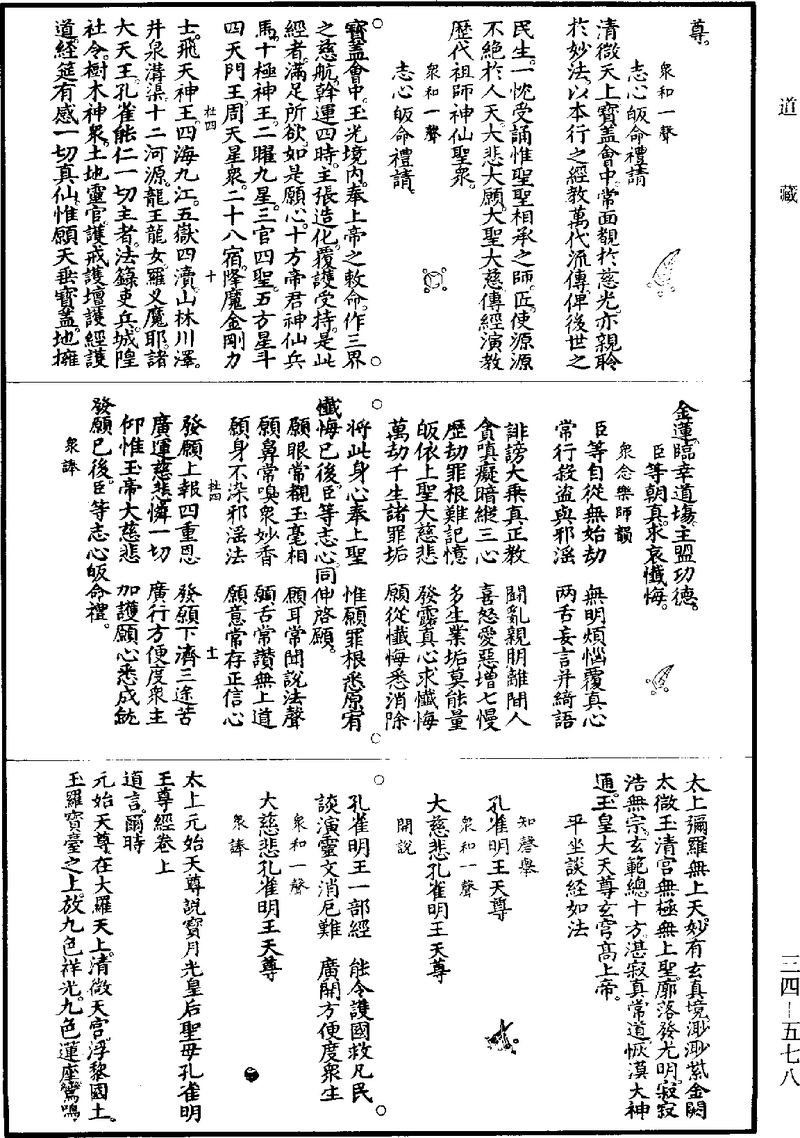 道藏
三四—五七八
尊。
衆和一聲
志心皈命禮請
清微天上寶盖會中。常面覩於慈光。亦親聆
於妙法。以本行之經教萬代流傳俾後世之
民生。一忱受誦惟聖聖相承之師匠。使源源
不絕於人天。大悲大願。大聖大慈傳經演教
歷代祖師神仙聖衆。
衆和一聲
志心皈命禮請。
寶盖會中。玉光境内。奉上帝之敕命。作三界
之慈航。斡運四時。主張造化。覆護受持。是此
經者。滿足所欲。如是願心。十方帝君神仙兵
馬。十極神王。二曜九星。三官四聖。五方星斗
四天門王。周天星衆。二十八宿。降魔金剛力
杜四 十
士。飛天神王四海九江。五嶽四瀆。山林川澤。
井泉溝渠。十二河源。龍王龍女羅义魔耶。諸
大天王。孔雀能仁一切主者。法籙吏兵。城隍
社令。樹木神衆。土地靈官。護戒護壇護經護
道。經筵有感一切真仙。惟願天垂寶盖。地擁
金蓮。臨幸道場。主盟功德。
臣等朝真。求哀懺悔。
衆念樂師韻
臣等自從無始劫 無明煩惱覆真心
常行殺盜與邪淫 两舌妄言并綺語
誹謗大乗真正教 鬪亂親朋離間人
貪嗔癡暗縱三心 喜怒愛惡增七慢
歷劫罪根難記憶 多生業垢莫能量
皈依上聖大慈悲 發露真心求懺悔
萬劫千生諸罪垢 願從懺悔悉消除
將此身心奉上聖 惟願罪根悉原宥
懺悔已後。臣等志心。同伸啓願。
願眼常覩玉毫相 願耳常聞說法聲
願鼻常嗅衆妙香 願舌常讚無上道
願身不染邪淫法 願意常存正信心
杜四 士
發願上報四重恩 發願下濟三途苦
廣運慈悲憐一切 廣行方便度衆生
仰惟玉帝大慈悲 加護願心悉成就
發願已後。臣等志心皈命禮。
衆諱
太上彌羅無上天。妙有玄真境。渺渺紫金闕
太微玉清宫。無極無上聖。廓落發光明。寂寂
浩無宗。玄範總十方。湛寂真常道。恢漠大神
通。玉皇大天尊玄穹高上帝。
平坐談經如法
知磬舉
孔雀明王天尊
衆和一聲
大慈悲孔雀明王天尊
開說
孔雀明王一部經 能令護國救凡民
談演靈文消厄難 廣開方便度衆生
衆和一聲
大慈悲孔雀明王天尊
衆諱
太上元始天尊說寶月光皇后聖母孔雀明
王尊經卷上
道言。爾時
元始天尊在大羅天上。清微天宫。浮黎國土。
玉羅寶臺之上。放九色祥光。九色蓮座。鸞鳴